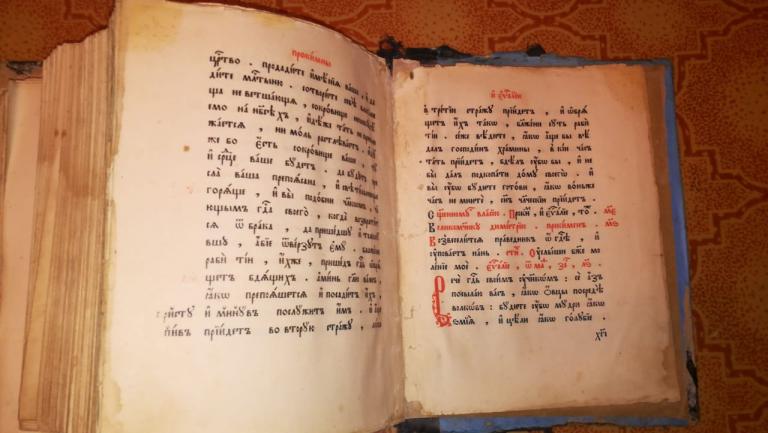 прокимны
црⷭ҇тво . продадите имѣнїѧ ваша , и да
дите млⷭ҇тыню . сотворите себѣ влагали
ща не ветшающа , сокровище неѡскꙋдѣ
емо на нб҃сѣхъ , идѣже тать не прибли
жается , ни моль растлѣваетъ .
же бо есть сокровище ваше , тꙋ
и срⷣце ваше бꙋдетъ . да бꙋдꙋтъ чре
сла ваша препоѧсана , и свѣтилницы
горѧще , и вы подобни человѣкомъ ча
ющымъ гдⷭ҇а своего , когда возвратит
сѧ ѿ брака , да пришедшꙋ и толкнꙋ
вшꙋ , абїе ѿверзꙋтъ емꙋ . блажени
раби тїи , ихже , пришед гдⷭ҇ь ѡбрѧ
щетъ бдѧщихъ . аминь глю вамъ ,
ꙗко препоѧшетсѧ и посадитъ ихъ ,
и минꙋвъ послꙋжитъ имъ . и аще
прїидетъ во вторꙋю стражꙋ ,
и еѵⷢ҇лїи
в третїю стражꙋ прїидетъ , и ѡбрѧ
щетъ ихъ тако , блажени сꙋть раби
тїи . се же вѣдите , ꙗко аще бы вѣ
далъ господинъ храмины , в кїи часъ
тать прїидетъ , бдѣлъ ꙋбѡ бы , и не
бы далъ подкопати домꙋ своегѡ . и
вы ꙋбо бꙋдите готови , ꙗко воньже
часъ не мните , сн҃ъ чл҃ческїи прїидетъ .
С щенномꙋ власїю . Прокⷨ , и еѵⷢ҇лїе , то
Великомⷱ҇никꙋ димитрїю . прокименъ
Возвеселитсѧ праведникъ ѡ гдⷭ҇ѣ , и
ꙋповаетъ нань . стⷯ . Оуслыши бж҃е мо
ленїе мое . еѵⷢ҇лїе , ѿ
Рече гдⷭ҇ь своимъ ꙋченикѡмъ : се азъ
посылаю васъ , ꙗко ѡвцы посредѣ
волковъ : бꙋдите ꙋбѡ мꙋдри ꙗко
ꙁмїѧ , и цѣли ꙗко голꙋбїе .